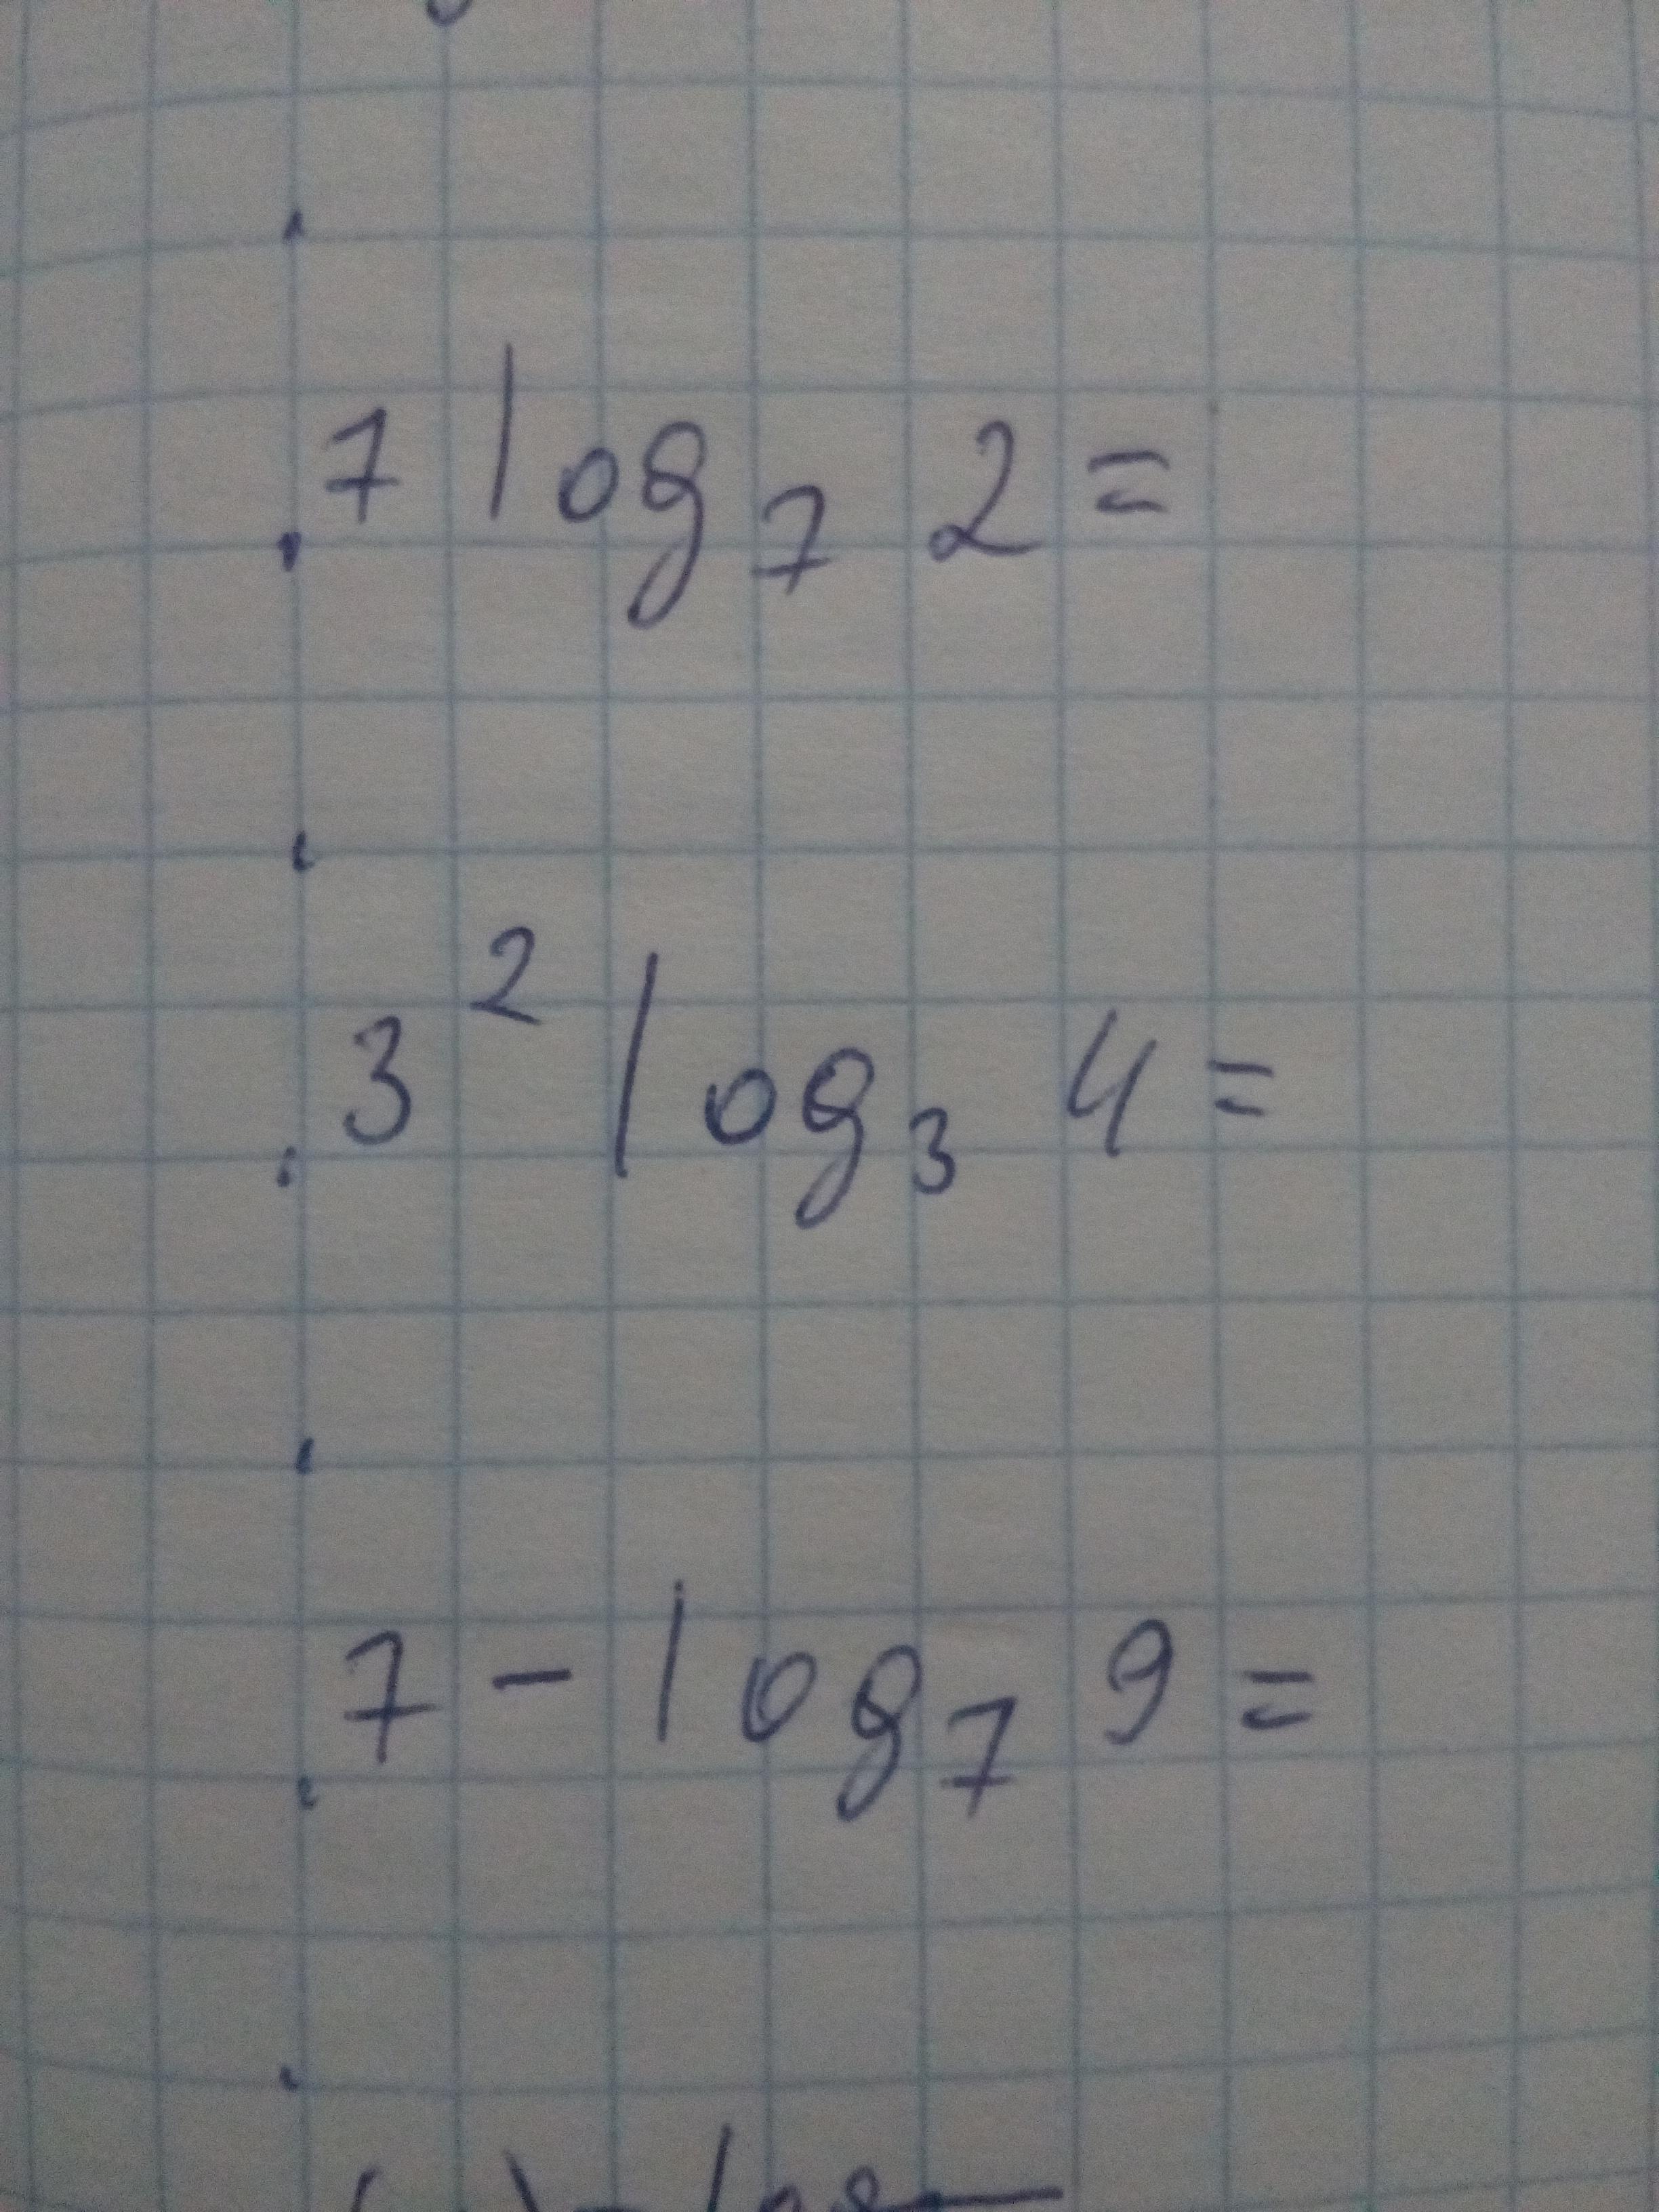 7 log₇ 2 =
3² log₃ 4 =
7 - log₇ 9 =